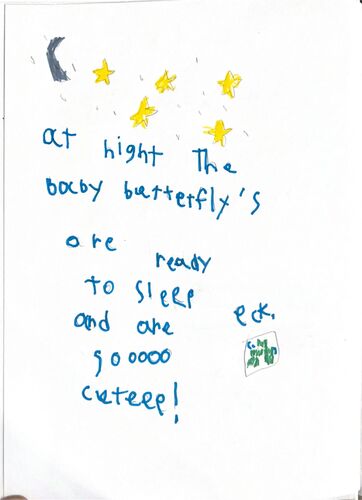 at night The
baby butterfly's
are ready
to sleep
and are eck.
sooooo
cuteee!